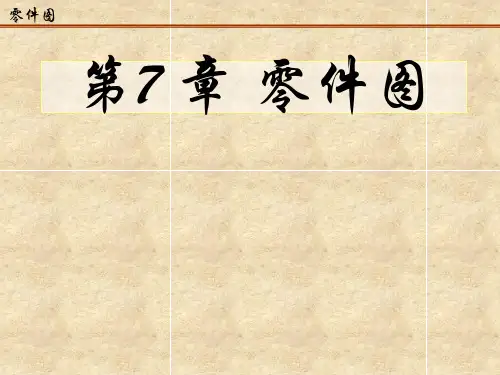 零件图
第7章 零件图